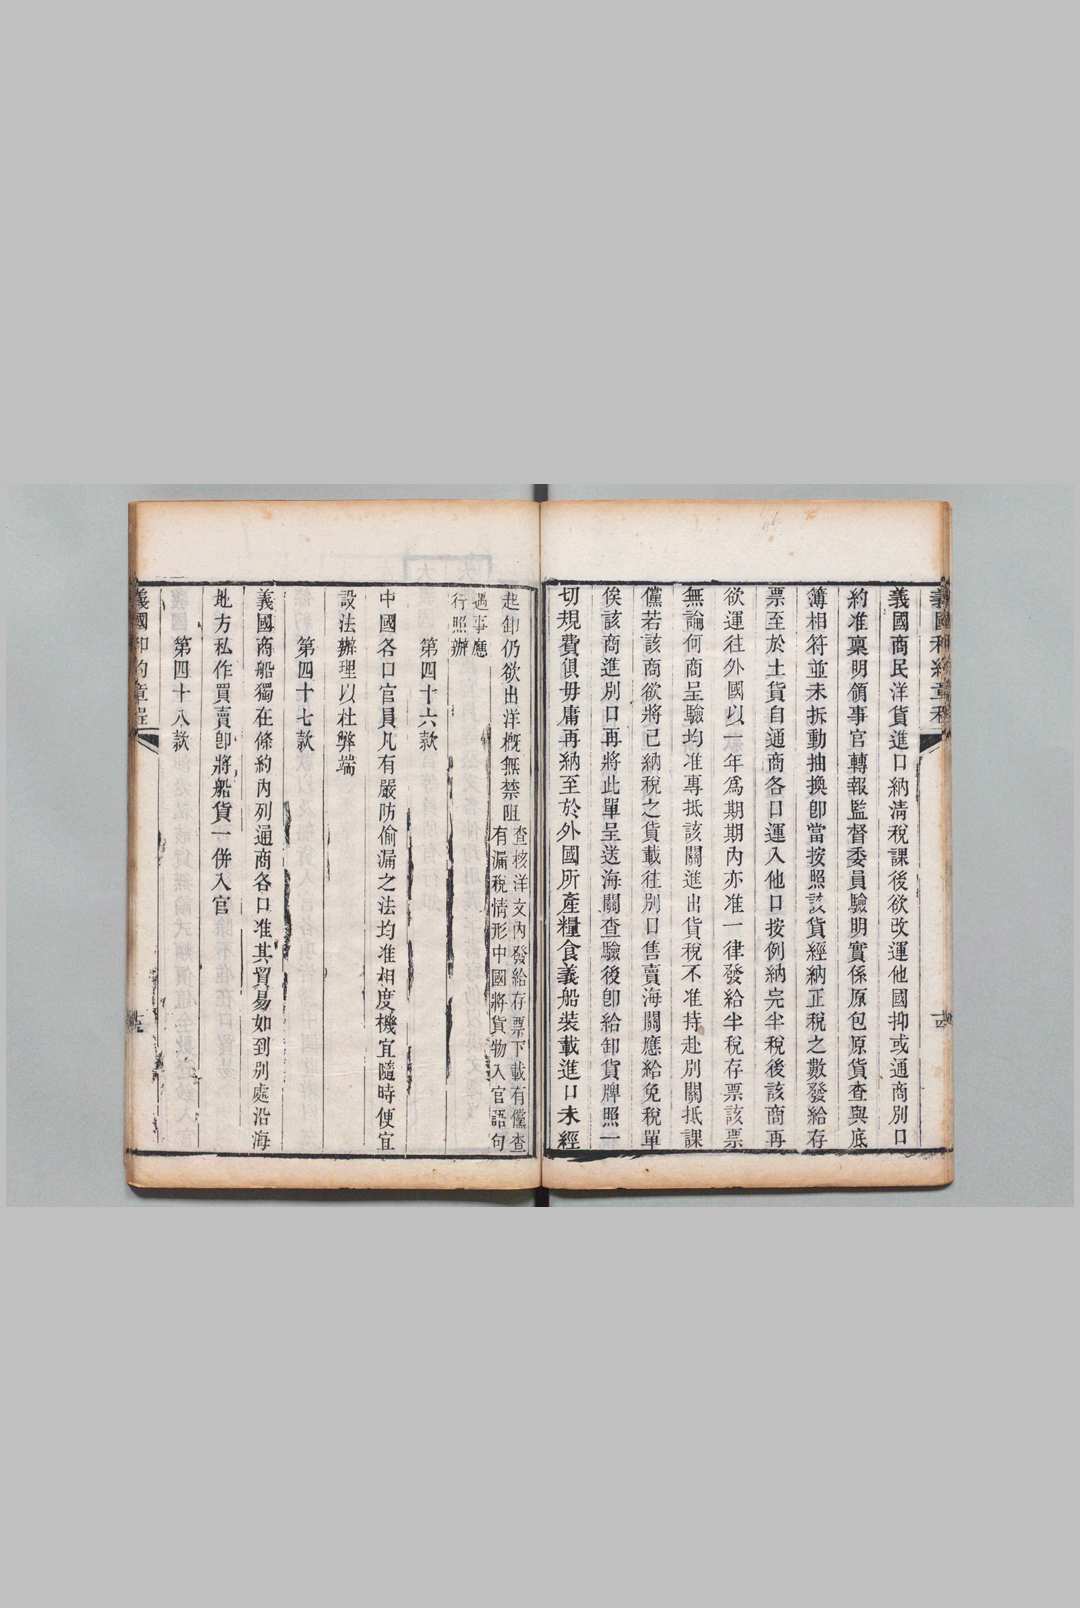 義國和約章程
義國商民洋貨進口納清稅課後欲改運他國抑或通商別口
約准稟明領事官轉報監督委員驗明實係原包原貨查與底
簿相符並未拆動抽換卽當按照該貨經納正稅之數發給存
票至於土貨自通商各口運入他口按例納完半稅後該商再
欲運往外國以一年爲期期內亦准一律發給半稅存票該票
無論何商呈驗均准專抵該關進出貨稅不准持赴別關抵課
儻若該商欲將已納稅之貨載往別口售賣海關應給免稅單
俟該商進別口再將此單呈送海關查驗後卽給卸貨牌照一
切規費俱毋庸再納至於外國所產糧食義船裝載進口未經
起卸仍欲出洋槪無禁阻
查核洋文內發給存票下載有儻查
有漏稅情形中國將貨物入官語句
遇事應
行照辦
第四十六款
中國各口官員凡有嚴防偷漏之法均准相度機宜隨時便宜
設法辦理以杜弊端
第四十七款
義國商船獨在條約內列通商各口准其貿易如到別處沿海
地方私作買賣卽將船貨一併入官
第四十八款
義國和約章程